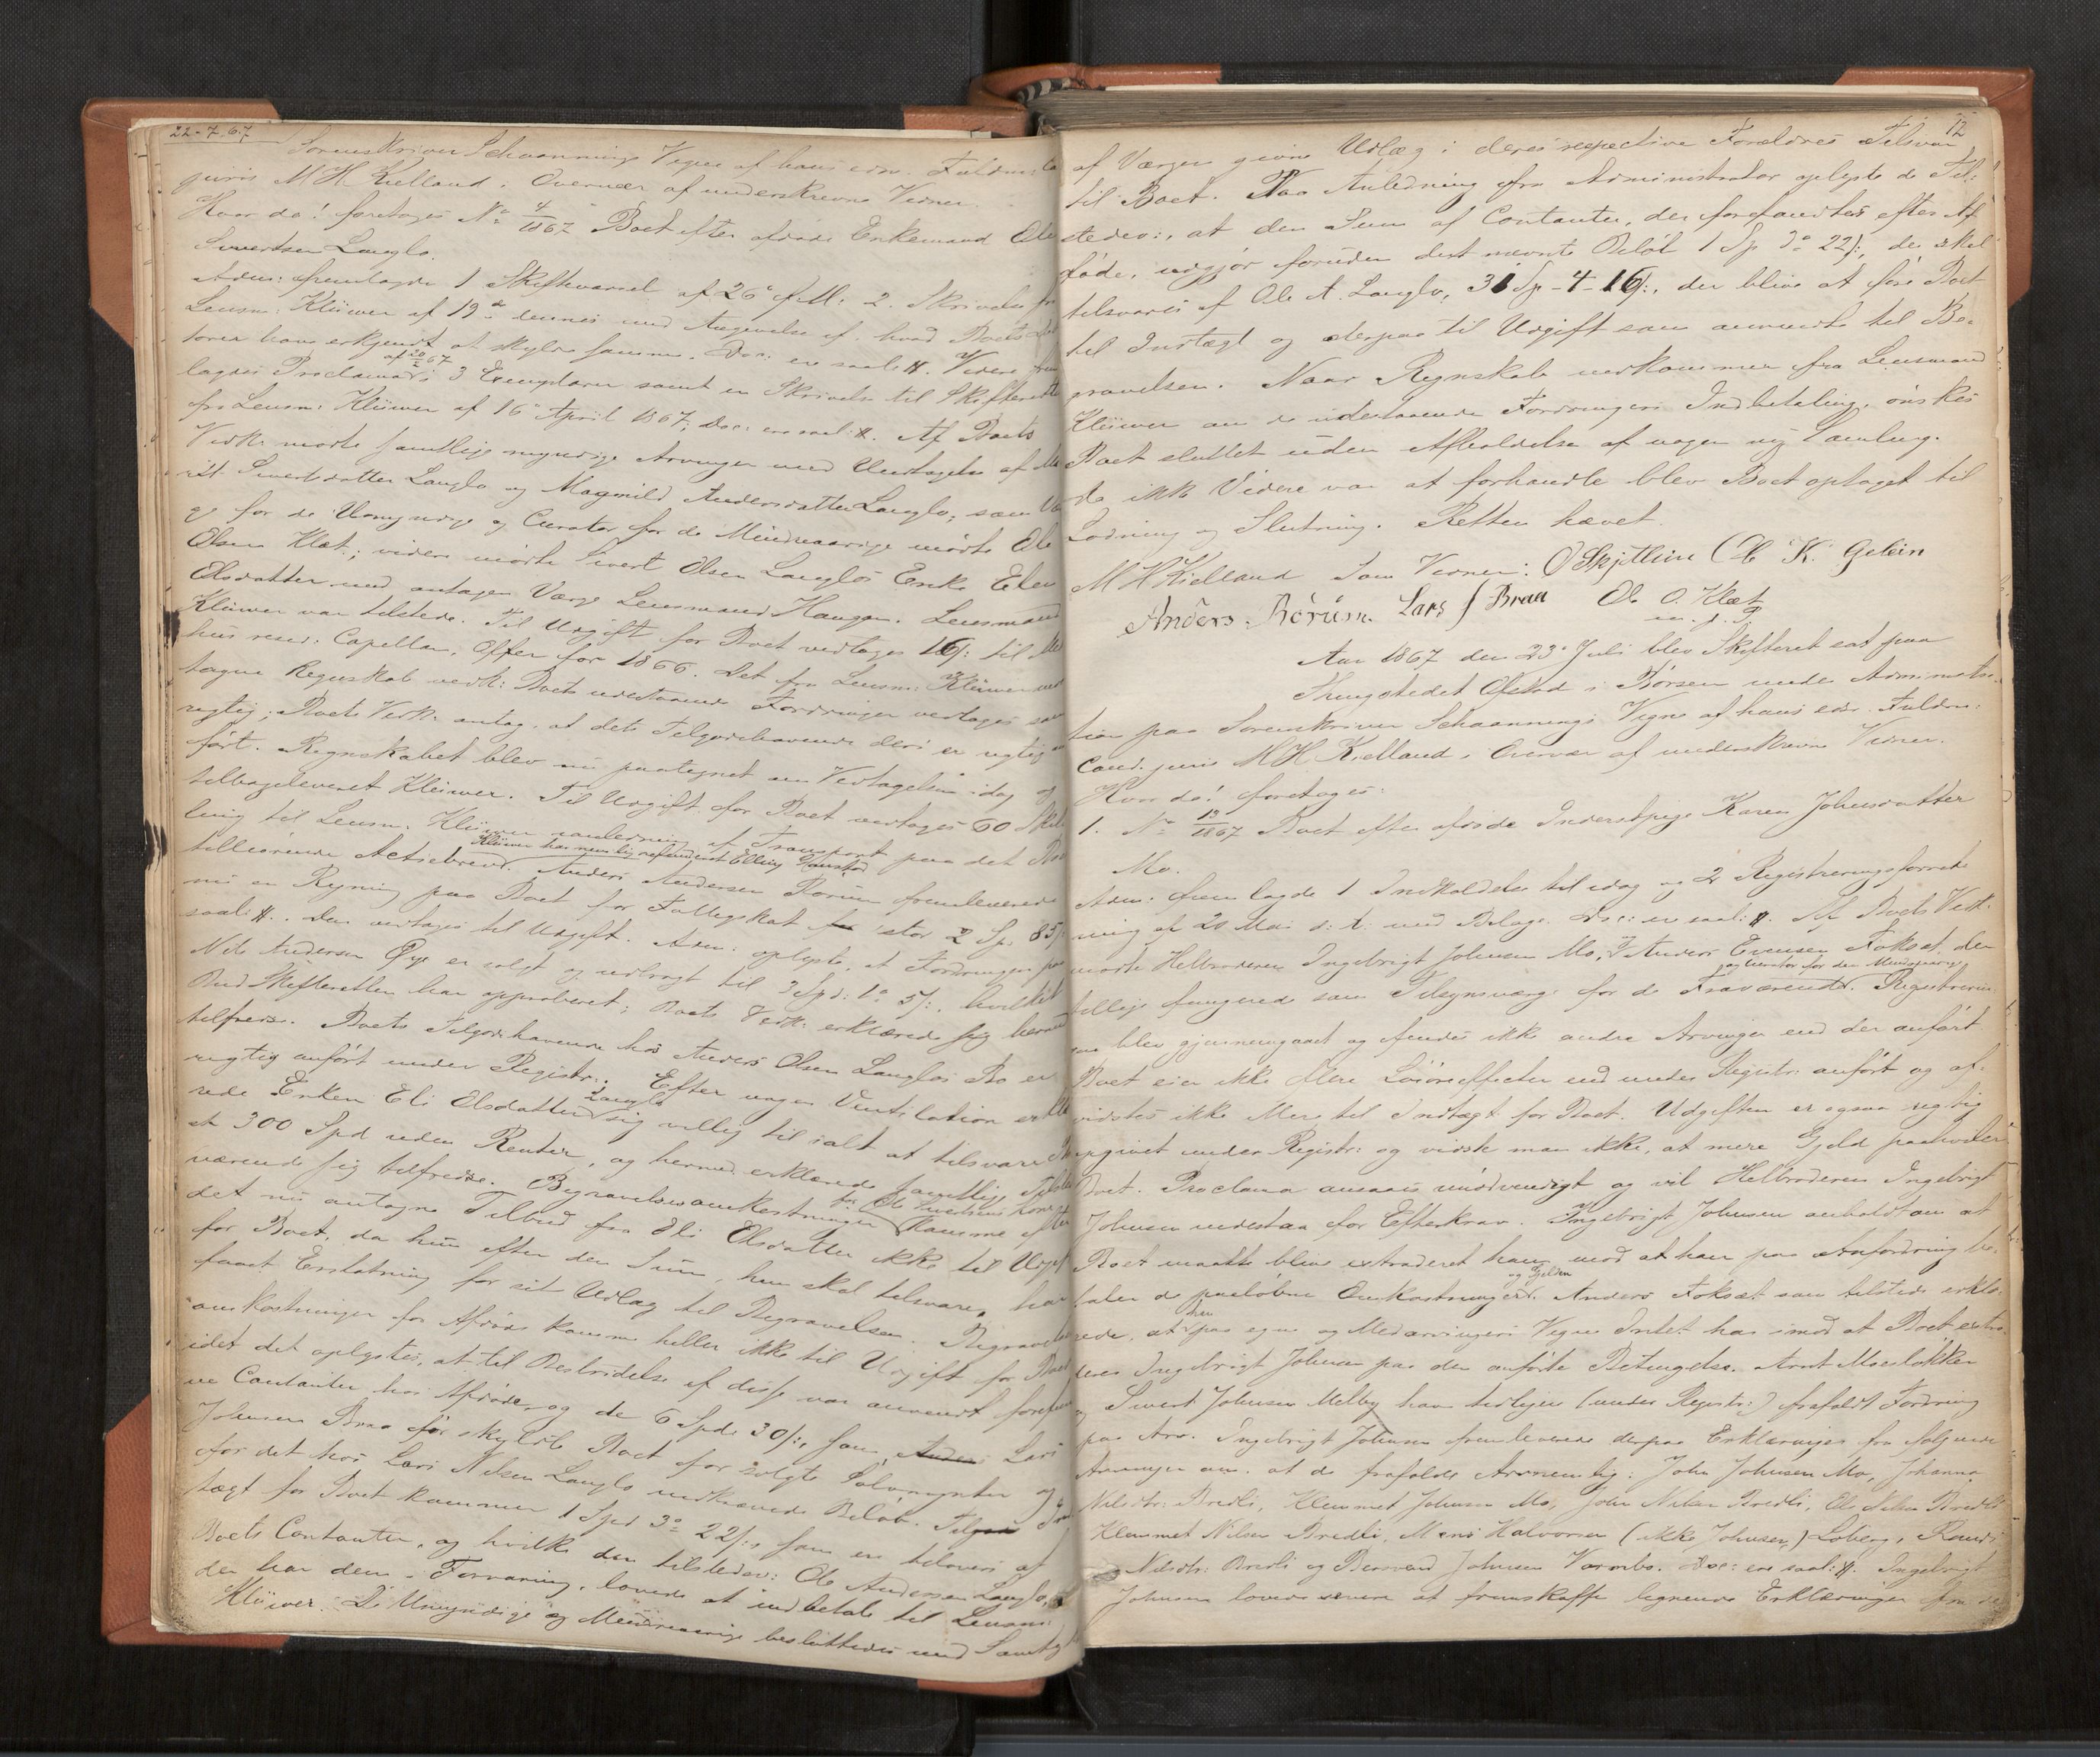 22-7.67
Sorenskriver Schaannings Vegne af hans edsv. Fuldm. Ca
juris M H Kielland. Overvær af underskrevne Vidner.
Hvor da! foretages No 4/1867 Boet efter afdøde Enkemand Ole
Sivertsen Langlo.
Adm: fremlagde 1 Skiftevarsel af 26de f. M: 2. Skrivelse fr
Lensm: Klüwer af 19de dennes med Angivelse af hvad Boets Debi
torer have erkjendt at skylde samme. Doc: er saal: #. Videre frem
af 20/2 67
lagdes Proclama i 3 Exemplarer samt en Skrivelse til Skifteretten
fra Lensm: Klüwer af 16de April 1867, Doc: ere saal: #. Af Boets
Vedk: mødte samtlige myndige Arvinger med Undtagelse af Ma
rit Sivertsdatter Langlo og Magnild Andersdatter Langlo; som Vær
ge for de Umyndige og Curator for de Mindreaarige mødte Ole
Olsen Klæt; videre mødte Sivert Olsen Langlos Enke Eli
Olsdatter med antagen Værge Lensmand Haugan. Lensmand
Klüwer var tilstede. Til Udgift for Boet vedtages 16/: til Mel
hus resid: Capellan, Offer for 1866. Det fra Lensm: Klüwer mod
tagne Regnskab vedk: Boets udestaaende Fordringer vedtages som
rigtig; Boets Vedk: antog, at dets Tilgodehavende deri er rigtig an
ført. Regnskabet blev nu paategnet om Vedtagelsen idag og
tilbageleveret Klüwer. Til Udgift for Boet vedtages 60 Skil
ling til Lensm. Klüwer anledning af Transport paa det Boet
Klüwer har nemlig refunderet Elling Hanstad
tilhørende Actiebrev. Anders Andersen Børum fremleverede
nu en Regning paa Boet for Fattigskat stor 2 Sp. 85/:
saal: #. Den vedtages til Udgift. Adm: oplyste, at Fordringen paa
Nils Andersen Øye er solgt og udbragt til 3 Spd: 1o 5/:, hvilket
Bud Skifteretten har approberet; Boets Vedk: erklærede sig herved
tilfreds. Boets Tilgodehavende hos Anders Olsen Langlos Bo er
rigtig anført under Registr:. Efter nogen Ventilation erklæ
Langlo
rede Enken Eli Olsdatter sig villig til ialt at tilsvare Bo
et 300 Spd uden Renter, og hermed erklærede samtlige Tilste
værende sig tilfredse. Begravelsesomkostninger for Ole Sivertsens Kone
det nu antagne Tilbud fra Eli Olsdatter ikke til Udgift
for Boet, da hun efter den Sum, hun skal tilsvare, har
faaet Erstatning for sit Udlæg til Begravelsen. Begravelses
omkostninger for Afdøde komme heller ikke til Udgift for Boet
idet det oplystes, at til Bestridelse af disse var anvendt forefun
ne Contanter hos Afdøde og de 6 Spd 30/:, som Lars
Johnsen Braa før skyldte Boet for solgte Sølvmynter og
for det hos Lars Nilsen Langlo indkrævede Beløb. Til Ind
tægt for Boet kommer 1 Spd 3o 22/:, som er tilovers af
Boets Contanter, og hvilke den tilstedev: Ole Andersen Langlo,
der har dem i Forvaring, lovede at indbetale til Lensm:
Klüwer. De Umyndige og Mindreaarige besluttedes med Samtykke
12
af Værgen givne Udlæg i deres respective Forældres Tilsvar
til Boet. Paa Anledning fra Administrator oplyste de Til-
stedev:, at den Sum af Contanter, der forefandtes efter Af
døde, udgjør foruden det nævnte Beløb 1 Sp 3o 22/:, der skal
tilsvares af Ole A. Langlo, 31 Sp - 4 - 16/:, der blive at føre Boet
til Indtægt og derpaa til Udgift som anvendt til Be-
gravelsen. Naar Regnskab indkommer fra Lensmand
Klüwer om de udestaaende Fordringers Indbetaling, ønskes
Boet sluttet uden Afholdelse af nogen ny Samling.
Da ikke Videre var at forhandle blev Boet optaget til
Lodning og Slutning. Retten hævet.
M H Kielland Som Vidner: O Skjetlein Ole K. Geilein
Anders. Børum. Lars J Braa Ole O. Klæt
m. p. P.
Aar 1867 den 23de Juli blev Skifteret sat paa
Thingstedet Ofstad i Børsen under Administra-
tion paa Sorenskriver Schaannings Vegne af hans edsv. Fuldm:
cand. juris M H Kielland. Overvær af underskrevne Vidner.
Hvor da! foretages:
1. No 13/1867 Boet efter afdøde Inderstpige Karen Johnsdatter
Mo.
Adm: fremlagde 1 Indkaldelse til idag og 2 Registreringsforret
ning af 20 Mai d: A: med Bilage. Doc: er saal: #. Af Boets Vedk:
mødte Helbroderen Ingebrigt Johnsen Mo, og Anders Evensen Foksæt, der
og Curator for den Mindreaarige
tillige fungerede som Tilsynsværge for de Fraværende. Registrerin
gen blev gjennemgaaet og fandtes ikke andre Arvinger end der anført.
Boet eier ikke flere Løsøreeffecter end under Registr: anført og af-
vidstes ikke Mere til Indtægt for Boet. Udgiften er ogsaa rigtig
opgivet under Registr: og vidste man ikke, at mere Gjeld paahviler
Boet. Proclama ansaaes unødvendigt og vil Helbroderen Ingebrigt
Johnsen indestaa for Efterkrav. Ingebrigt Johnsen anholdt om at
Boet maatte blive extraderet ham mod at han paa Anfordring be-
og Gjelden
taler de paaløbne Omkostninger. Anders Foksæt som tilstede erklæ
han
rede, at paa egne og Medarvingers Vegne Intet har imod at Boet extra
deres Ingebrigt Johnsen paa den anførte Betingelse. Arnt Moesløkken
og Sivert Johnsen Melby have tidligere (under Registr:) frafaldt Fordring
paa Arv. Ingebrigt Johnsen fremleverede derpaa Erklæringer fra følgende
Arvinger om, at de frafalde Arv nemlig: John Johnsen Mo, Johanna
Nilsdtr: Bredli, Klemmet Johnsen Mo, John Nilsen Bredli, Ole Nilsen Bredli
Klemmet Nilsen Bredli, Mons Halvorsen (ikke Johnsen,) Loberg, Randi
Nilsdtr: Bredli og Bersvend Johnsen Vormbo. Doc: ere saal: #. Ingebrigt
Johnsen lovede senere at fremskaffe lignende Erklæringer fra de